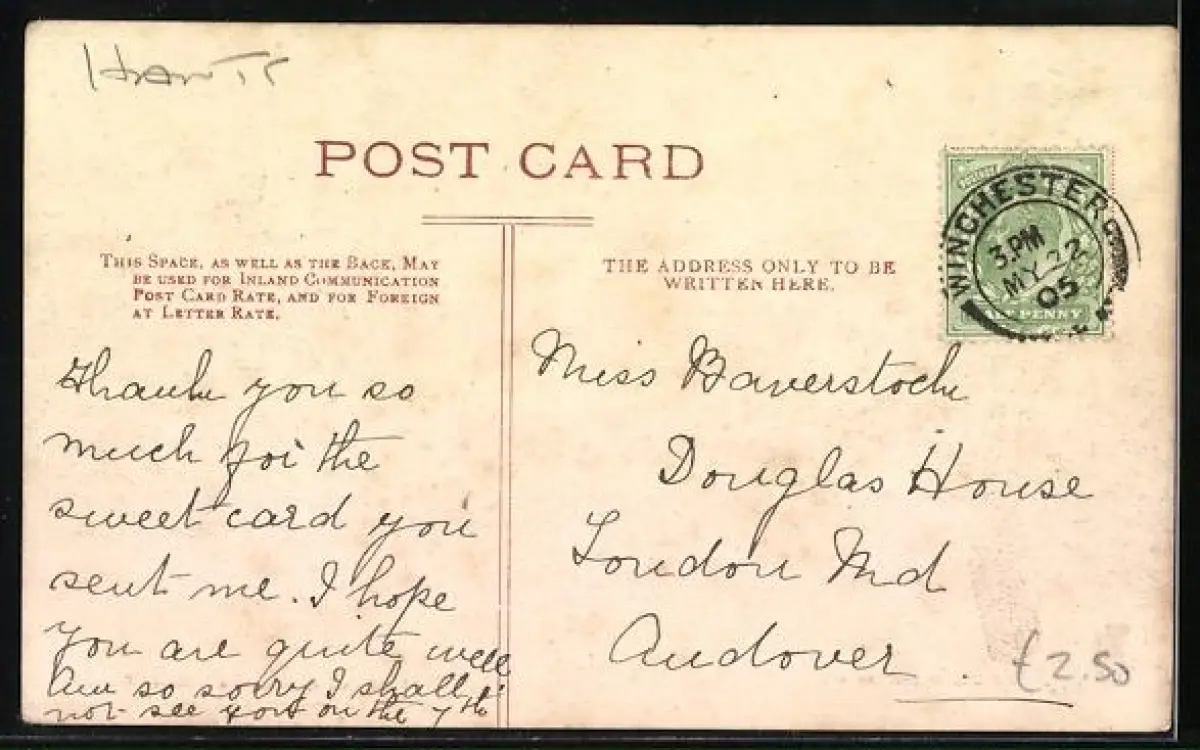 Hants
POST CARD
THIS SPACE, AS WELL AS THE BACK, MAY
BE USED FOR INLAND COMMUNICATION
POST CARD RATE, AND FOR FOREIGN
AT LETTER RATE.
THE ADDRESS ONLY TO BE
WRITTEN HERE.
WINCHESTER
3.PM
MY 22
05
HALF PENNY
Thank you so
much for the
sweet card you
sent me. I hope
you are quite well
Am so sorry I shall
not see you on the 7th
Miss Baverstock
Douglas House
London Rd
Andover.
£2.50